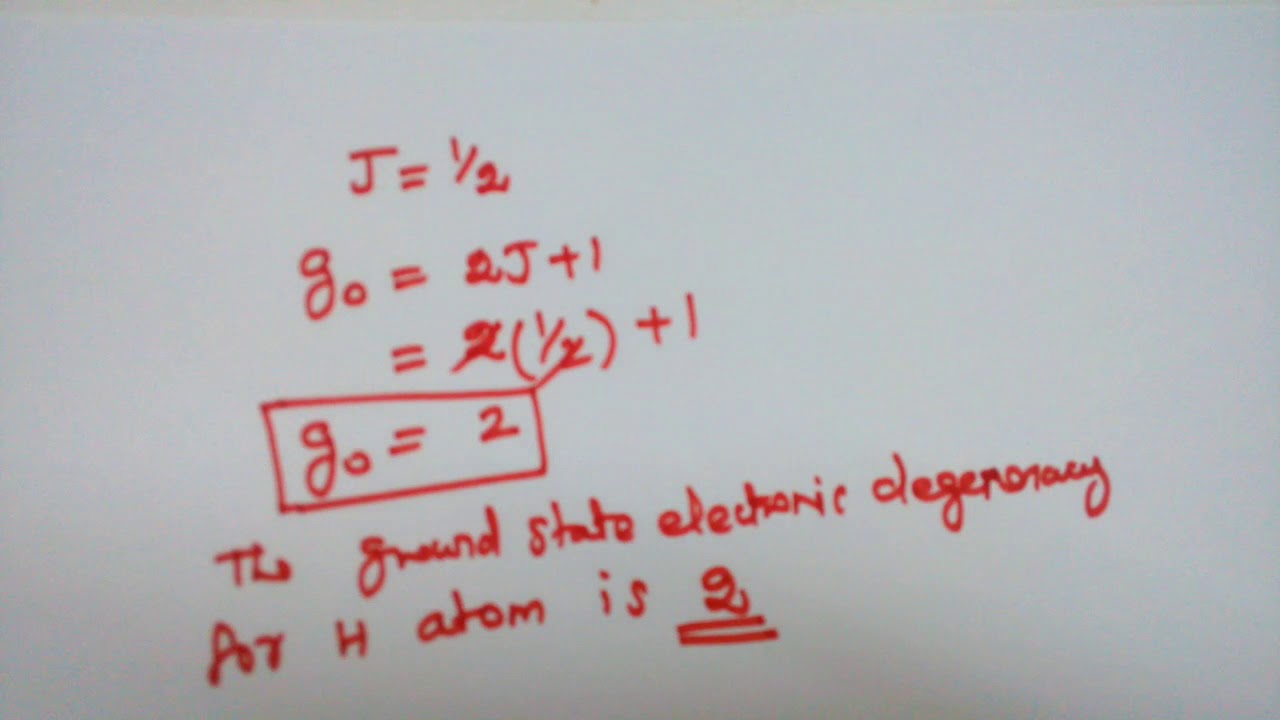 J = 1/2
g₀ = 2J + 1
= 2(1/2) + 1
g₀ = 2
The ground state electronic degeneracy
for H atom is 2